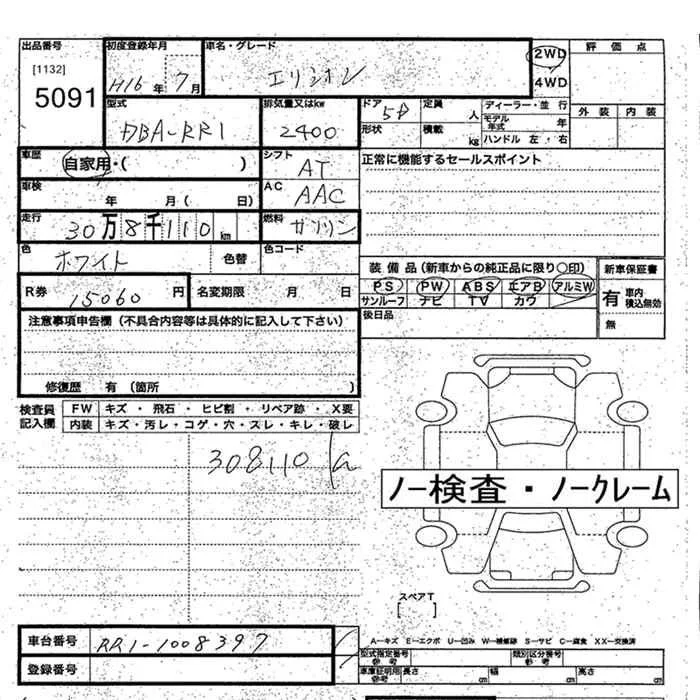 出品番号 初度登録年月 車名・グレード 評価点
[1132]
5091
H16年 7月 エリシオン 2WD
4WD
型式 排気量又はkw ドア 5D 定員 人 ディーラー・並行 外装 内装
DBA-RR1 2400 形状 積載 kg モデル年式 年
ハンドル 左・右
車歴 自家用・( ) シフト AT 正常に機能するセールスポイント
車検 年 月( 日) AC AAC
走行 30万8千110km 燃料 ガソリン
色 ホワイト 色替 色コード
装備品(新車からの純正品に限り○印) 新車保証書
R券 15060円 名変期限 月 日 PS PW ABS エアB アルミW 有 車内 積込無効
サンルーフ ナビ TV カワ
注意事項申告欄(不具合内容等は具体的に記入して下さい) 後日品 無
修復歴 有(箇所 )
検査員記入欄 FW キズ・飛石・ヒビ割・リペア跡・X要
内装 キズ・汚レ・コゲ・穴・スレ・キレ・破レ
308110
ノー検査・ノークレーム
スペアT
[ ]
車台番号 RR1-1008397 A-キズ E-エクボ U-凹み W-補修跡 S-サビ C-腐食 XX-交換済
型式指定番号 参考 類別区分番号 参考
登録番号 車庫証明用 参考 長さ cm 幅 cm 高さ cm